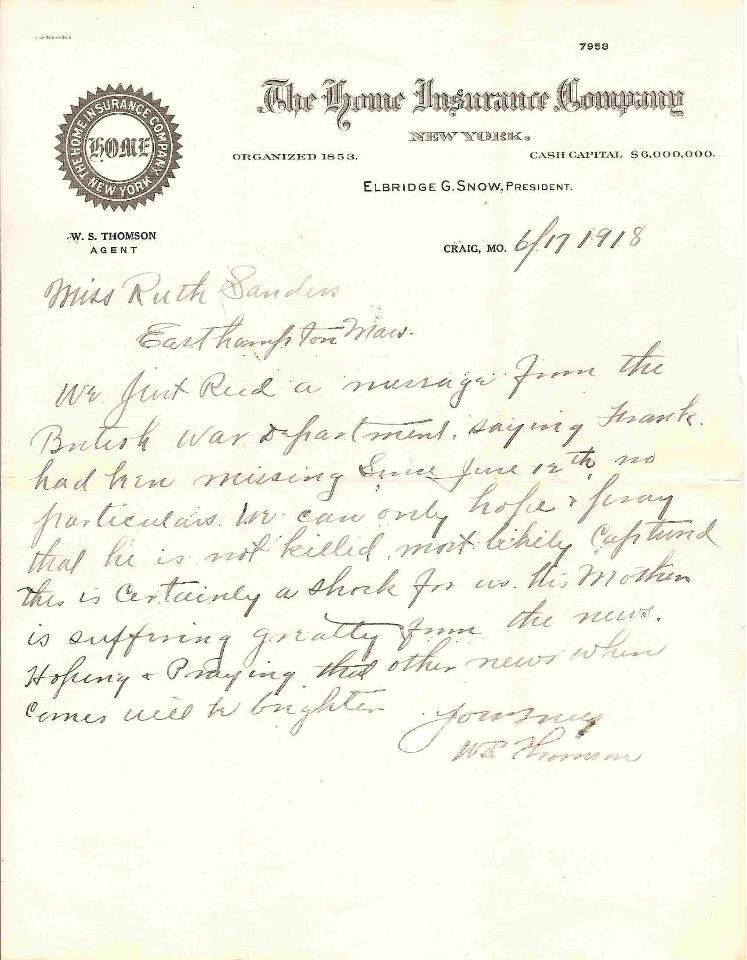 7958
The Home Insurance Company
NEW YORK.
ORGANIZED 1853. CASH CAPITAL $6,000,000.
ELBRIDGE G. SNOW, PRESIDENT.
THE HOME INSURANCE COMPANY
HOME
NEW YORK
W. S. THOMSON
AGENT
CRAIG, MO. 6/17 1918
Miss Ruth Sanders
Easthampton Mass.
We Just Recd a message from the
British War Department, saying Frank
had been missing Since June 12th, no
particulars. We can only hope & pray
that he is not killed, most likely Captured
this is Certainly a shock for us. his Mother
is suffering greatly from the news.
Hoping & Praying that other news when
Comes will be brighter
Yours Truly
WS Thomson